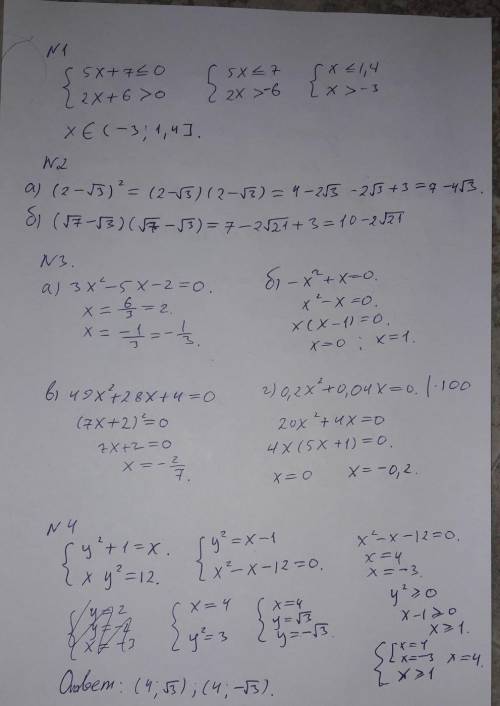 N1
{ 5x+7≤0 { 5x≤7 { x≤1,4
{ 2x+6>0 { 2x>-6 { x>-3
x∈(-3; 1,4].
N2
а) (2-√3)² = (2-√3)(2-√3) = 4-2√3 -2√3+3 = 7-4√3.
б) (√7-√3)(√7-√3) = 7-2√21+3 = 10-2√21
N3.
а) 3x²-5x-2=0.
x = 6/3 = 2.
x = -1/3 = -1/3.
б) -x²+x=0.
x²-x=0.
x(x-1)=0.
x=0 ; x=1.
в) 49x²+28x+4=0
(7x+2)²=0
7x+2=0
x=-2/7.
г) 0,2x²+0,04x=0. |·100
20x²+4x=0
4x(5x+1)=0.
x=0 x=-0,2.
N4
{ y²+1=x. { y²=x-1
{ x y²=12. { x²-x-12=0.
x²-x-12=0.
x=4
x=-3.
y²≥0
x-1≥0
x≥1.
{ [ x=4
[ x=-3 x=4.
x≥1
{ x=4
{ y²=3
{ x=4
y=√3
y=-√3.
Ответ: (4; √3); (4; -√3).